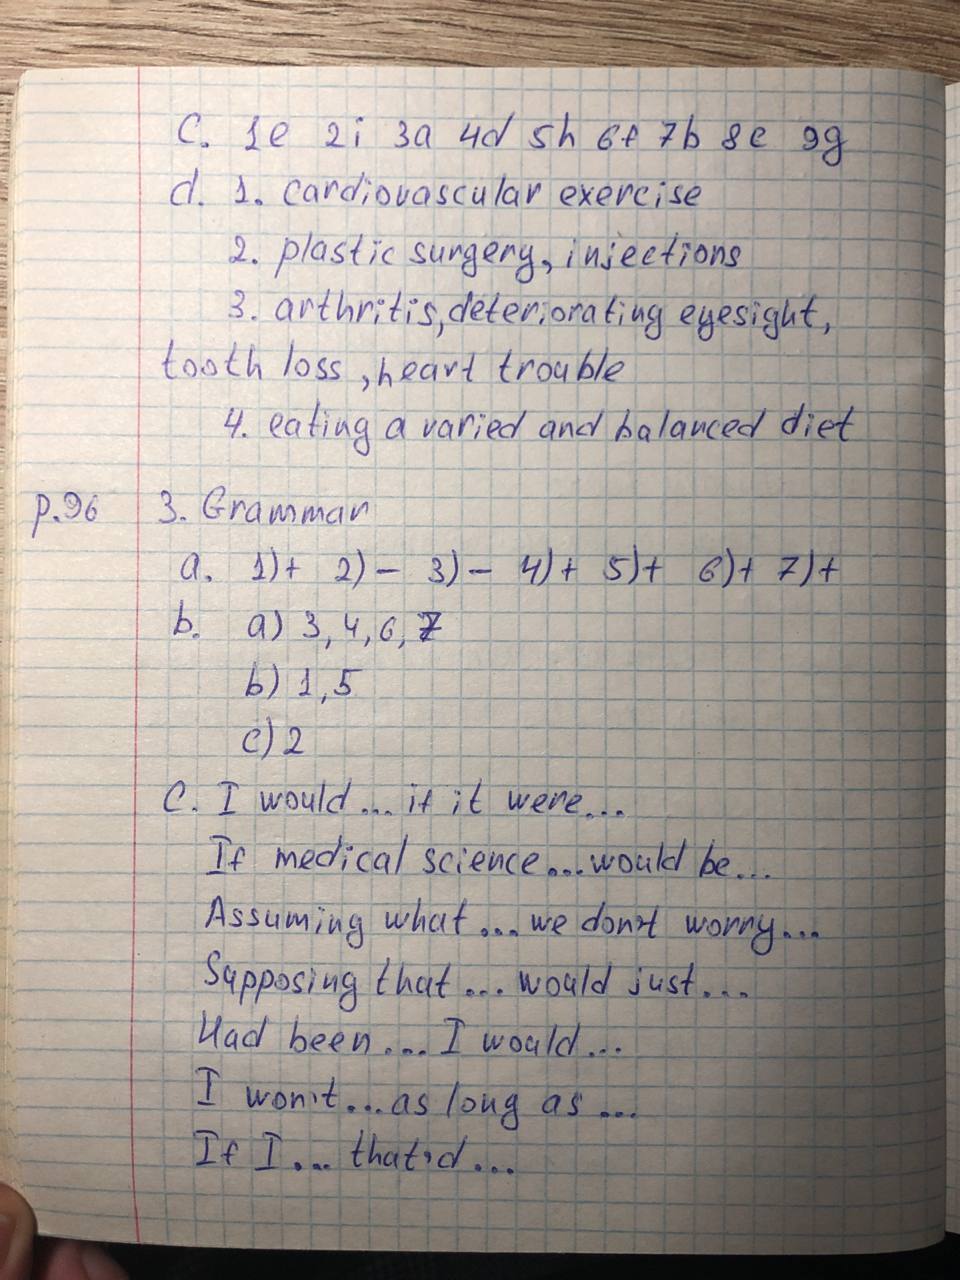 C. 1e 2i 3a 4d 5h 6f 7b 8c 9g
d. 1. cardiovascular exercise
2. plastic surgery, injections
3. arthritis, deteriorating eyesight,
tooth loss, heart trouble
4. eating a varied and balanced diet
p.96 3. Grammar
a. 1)+ 2)– 3)– 4)+ 5)+ 6)+ 7)+
b. a) 3, 4, 6, 7
b) 1, 5
c) 2
C. I would... if it were...
If medical science... would be...
Assuming what... we don't worry...
Supposing that... would just...
Had been... I would...
I won't... as long as...
If I... that'd...